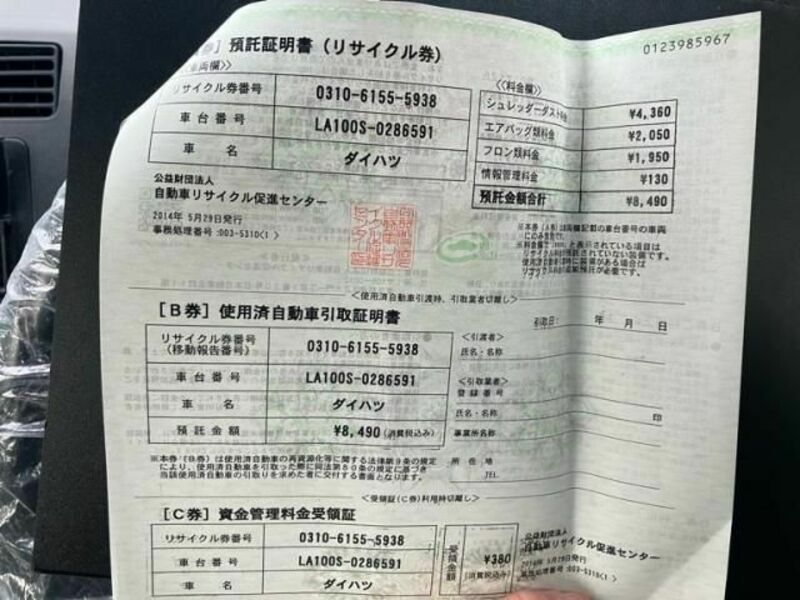 券］預託証明書（リサイクル券）
0123985967
車両欄》
リサイクル券番号 0310-6155-5938
車台番号 LA100S-0286591
車名 ダイハツ
《料金欄》
シュレッダーダスト料金 ¥4,360
エアバッグ類料金 ¥2,050
フロン類料金 ¥1,950
情報管理料金 ¥130
預託金額合計 ¥8,490
公益財団法人
自動車リサイクル促進センター
2014年 5月29日発行
事務処理番号:003-5310(1 )
＜使用済自動車引渡時、引取業者切離し＞
［B券］使用済自動車引取証明書
引取日: 年 月 日
リサイクル券番号
(移動報告番号) 0310-6155-5938
車台番号 LA100S-0286591
車名 ダイハツ
預託金額 ¥8,490(消費税込み)
＜引渡者＞
氏名・名称
＜引取業者＞
登録番号
氏名・名称 印
事業所名称
所在地
TEL
※本券（B券）は使用済自動車の再資源化等に関する法律第９条の規定
により、使用済自動車を引取った際に同法第８０条の規定に基づき
当該使用済自動車の引取りを求めた者に交付する書面となります。
＜受領証(C券)利用時切離し＞
［C券］資金管理料金受領証
リサイクル券番号 0310-6155-5938
車台番号 LA100S-0286591
車名 ダイハツ
受領金額 ¥380
(消費税込み)
公益財団法人
自動車リサイクル促進センター
2014年 5月29日発行
事務処理番号:003-5310(1 )